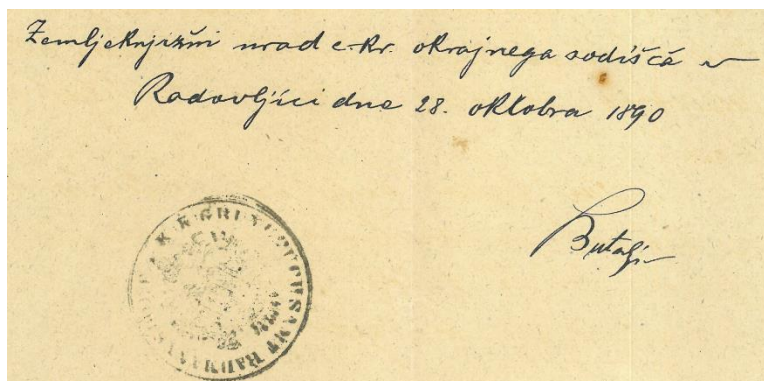 Zemljeknjižni urad c. kr. okrajnega sodišča v
Radovljici dne 28. oktobra 1890
K. K. GRUNDBUCHSAMT RADMANNSDORF